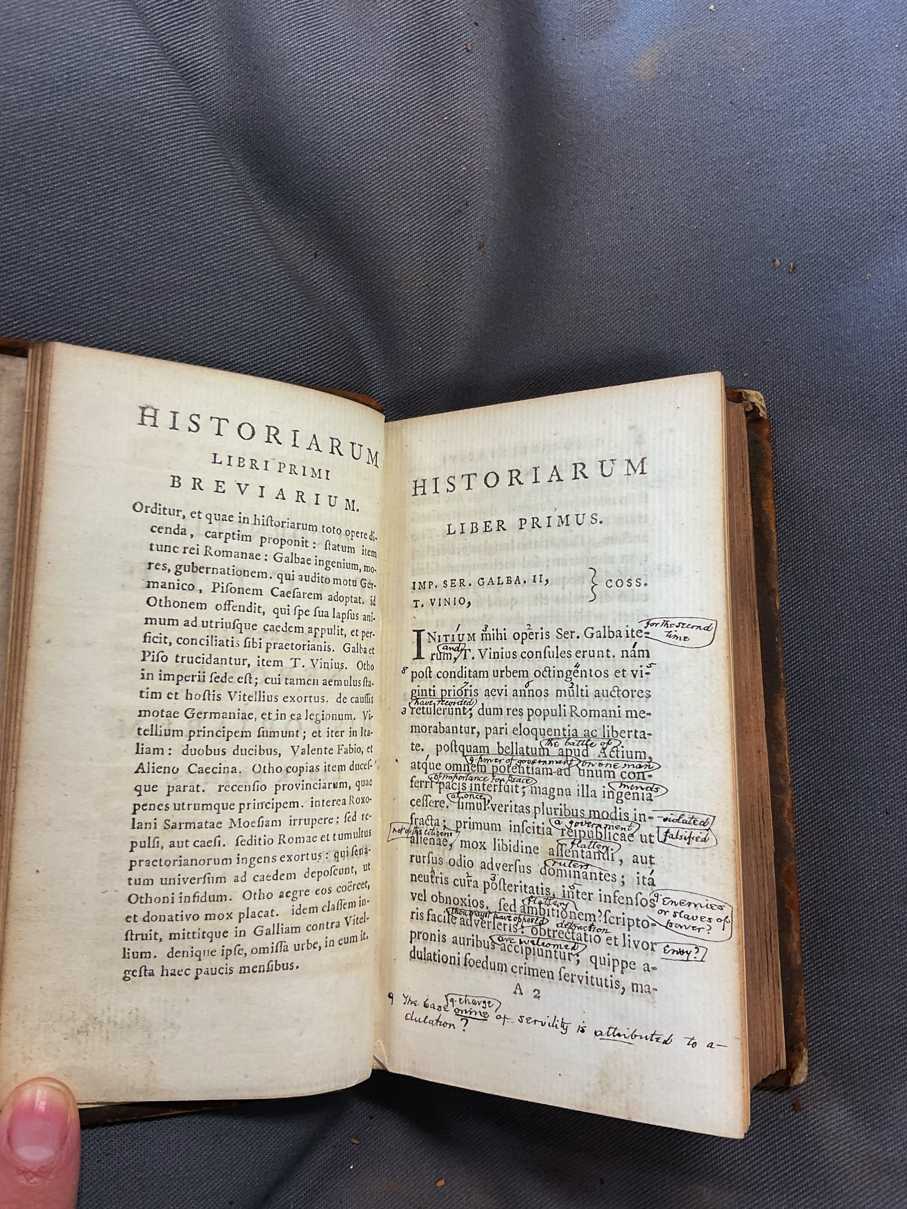 HISTORIARUM
LIBRI PRIMI
BREVIARIUM.
Orditur, et quae in hiſtoriarum toto opere di-
cenda, carptim proponit: ſtatum item
tunc rei Romanae: Galbae ingenium, mo-
res, gubernationem. qui audito motu Ger-
manico, Piſonem Caeſarem adoptat. id
Othonem offendit, qui ſpe ſua lapſus ani-
mum ad utriuſque caedem appulit, et per-
ficit, conciliatis ſibi praetorianis. Galba et
Piſo trucidantur, item T. Vinius. Otho
in imperii ſede eſt; cui tamen aemulus ſta-
tim et hoſtis Vitellius exortus. de cauſſis
motae Germaniae, et in ea legionum. Vi-
tellium principem ſumunt; et iter in Ita-
liam: duobus ducibus, Valente Fabio, et
Alieno Caecina. Otho copias item duceſ-
que parat. recenſio provinciarum, quae
penes utrumque principem. interea Roxo-
lani Sarmatae Moeſiam irrupere; ſed re-
pulſi, aut caeſi. ſeditio Romae et tumultus
praetorianorum ingens exortus: qui ſena-
tum univerſum ad caedem depoſcunt, ut
Othoni infidum. Otho aegre eos coërcet,
et donativo mox placat. idem claſſem in-
ſtruit, mittitque in Galliam contra Vitel-
lium. denique ipſe, omiſſa urbe, in eum it.
geſta haec paucis menſibus.
HISTORIARUM
LIBER PRIMUS.
IMP. SER. GALBA. II,
T. VINIO, } COSS.
for the second
time
1 3 2
INITIUM mihi operis Ser. Galba ite-
and
rum, T. Vinius conſules erunt. nam
8 4 5
poſt conditam urbem octingentos et vi-
7 6 1 2
ginti prioris aevi annos multi auctores
have recorded
3 retulerunt; dum res populi Romani me-
morabantur, pari eloquentia ac liberta-
the battle of
te. poſtquam bellatum apud Actium,
q. power of government on one man
atque omnem potentiam ad unum con-
of importance for peace minds
ferri pacis interfuit; magna illa ingenia
at once
ceſſere. ſimul veritas pluribus modis in-
violated
a government
fracta; primum inſcitia reipublicae ut
falsified
flattery
alienae, mox libidine aſſentandi, aut
rulers
rurſus odio adverſus dominantes; ita
neutris cura poſteritatis, inter infenſos
q Enemies
or slaves of
power?
flattery
vel obnoxios, ſed ambitionem ſcripto-
thou mayst have opposed detraction
ris facile adverſeris: obtrectatio et livor
Envy?
are welcomed
pronis auribus accipiuntur; quippe a-
dulationi foedum crimen ſervitutis, ma-
A 2
q. charge
q The base crime of servility is attributed to a-
dulation?